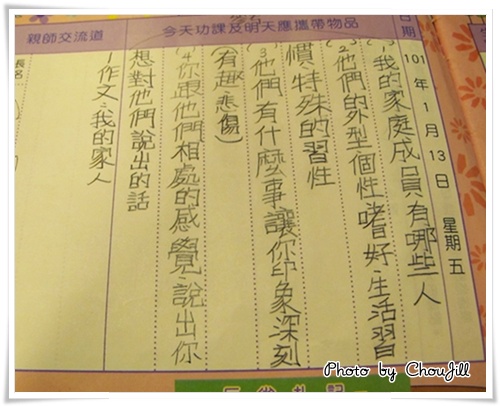 日期
101年1月13日 星期五
今天功課及明天應攜帶物品
(1)我的家庭成員有哪些人
(2)他們的外型、個性、嗜好、生活習
慣、特殊的習性
(3)他們有什麼事讓你印象深刻
(有趣、悲傷)
(4)你跟他們相處的感覺、說出你
想對他們說出的話
1作文:我的家人
親師交流道
長名
Photo by ChouJill